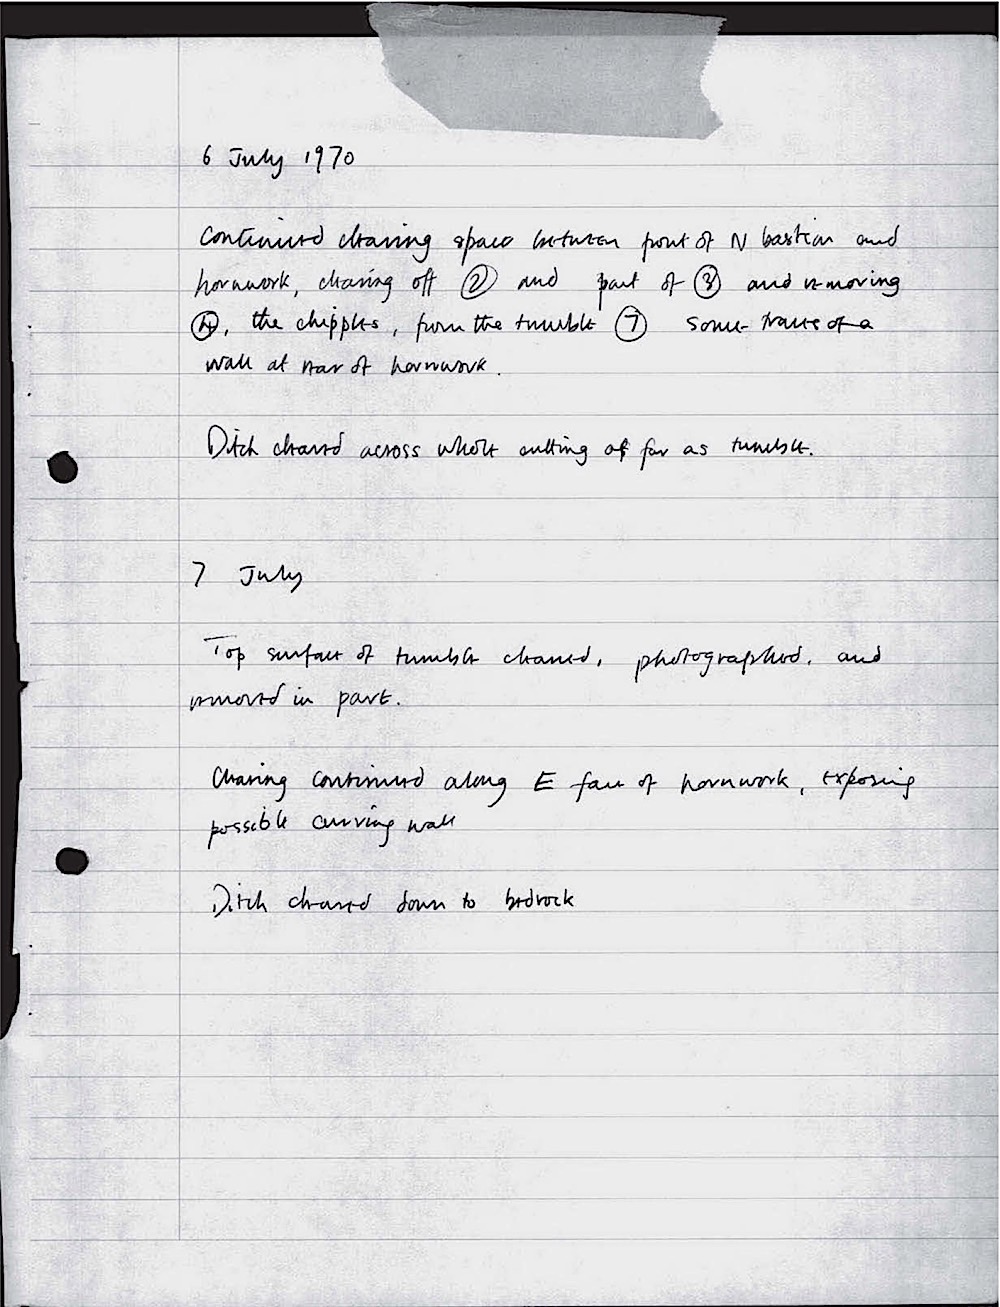 6 July 1970
Continued clearing space between front of N bastion and
hornwork, clearing off ② and part of ③ and removing
④, the chipples, from the tumble ⑦ some trace of a
wall at rear of hornwork.
Ditch cleared across whole cutting as far as tumble.
7 July
Top surface of tumble cleaned, photographed, and
removed in part.
Clearing continued along E face of hornwork, exposing
possible curving wall
Ditch cleared down to bedrock